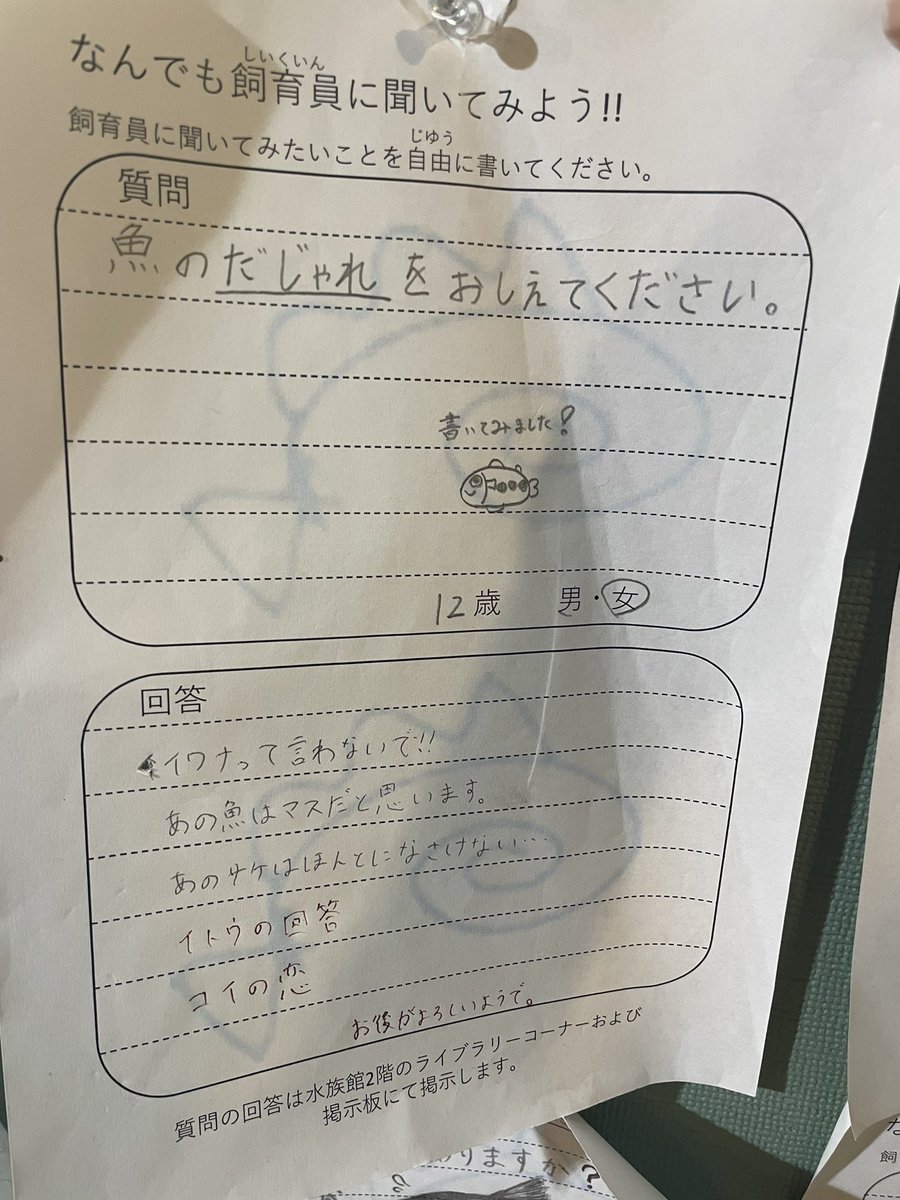 なんでも飼育員に聞いてみよう!!
しいくいん
飼育員に聞いてみたいことを自由に書いてください。
じゆう
質問
魚のだじゃれをおしえてください。
書いてみました!
12歳 男・女
回答
イワナって言わないで!!
あの魚はマスだと思います。
あのサケはほんとになさけない…
イトウの回答
コイの恋
お後がよろしいようで。
質問の回答は水族館2階のライブラリーコーナーおよび
掲示板にて掲示します。
ありますか?
な
飼